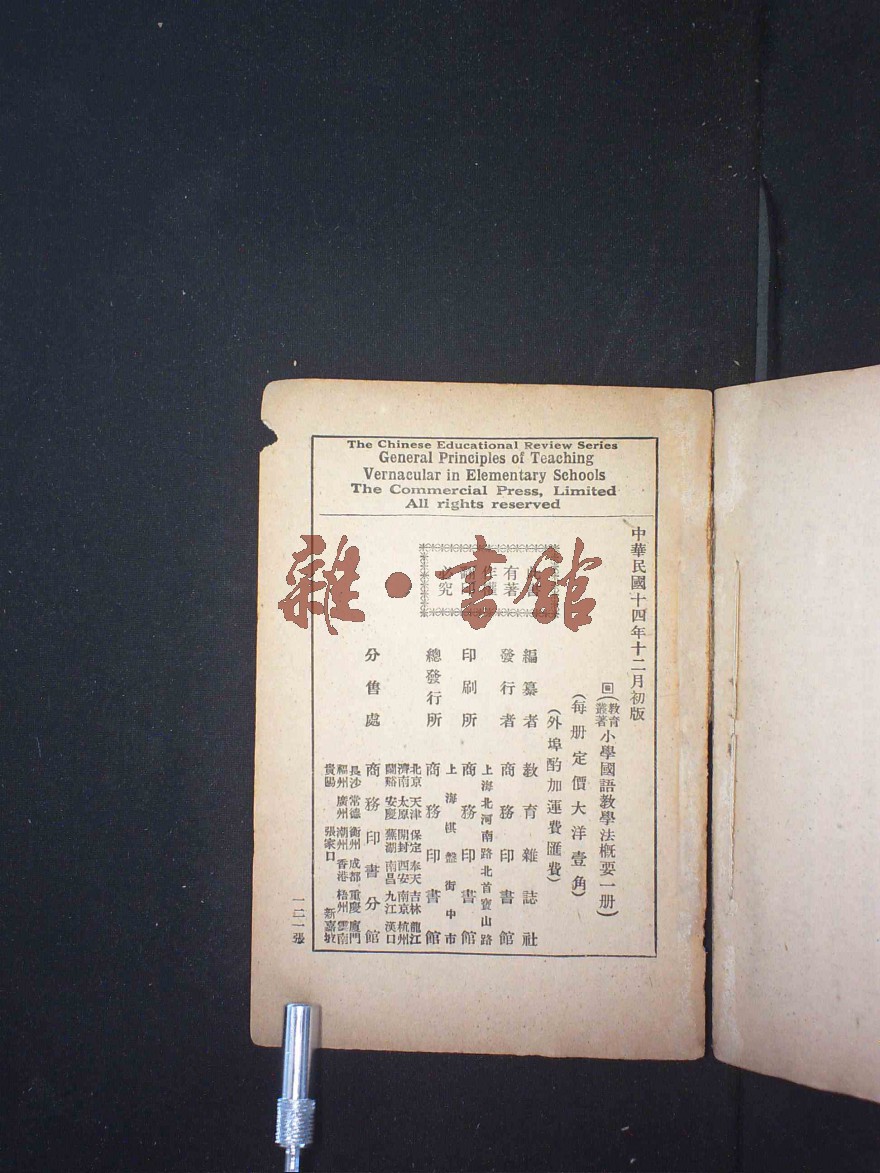 The Chinese Educational Review Series
General Principles of Teaching
Vernacular in Elementary Schools
The Commercial Press, Limited
All rights reserved
中華民國十四年十二月初版
(教育叢著小學國語教學法概要一册)
(每册定價大洋壹角)
(外埠酌加運費匯費)
有著
作權
究
編纂者 教育雜誌社
發行者 商務印書館
上海北河南路北首寶山路
印刷所 商務印書館
上海棋盤街中市
總發行所 商務印書館
北京 天津 保定 奉天 吉林 龍江
濟南 太原 開封 西安 南京 杭州
蘭谿 安慶 蕪湖 南昌 九江 漢口
分售處 商務印書分館
長沙 常德 衡州 成都 重慶 廈門
福州 廣州 潮州 香港 梧州 雲南
貴陽 張家口 新嘉坡
一二一張
雜·書館